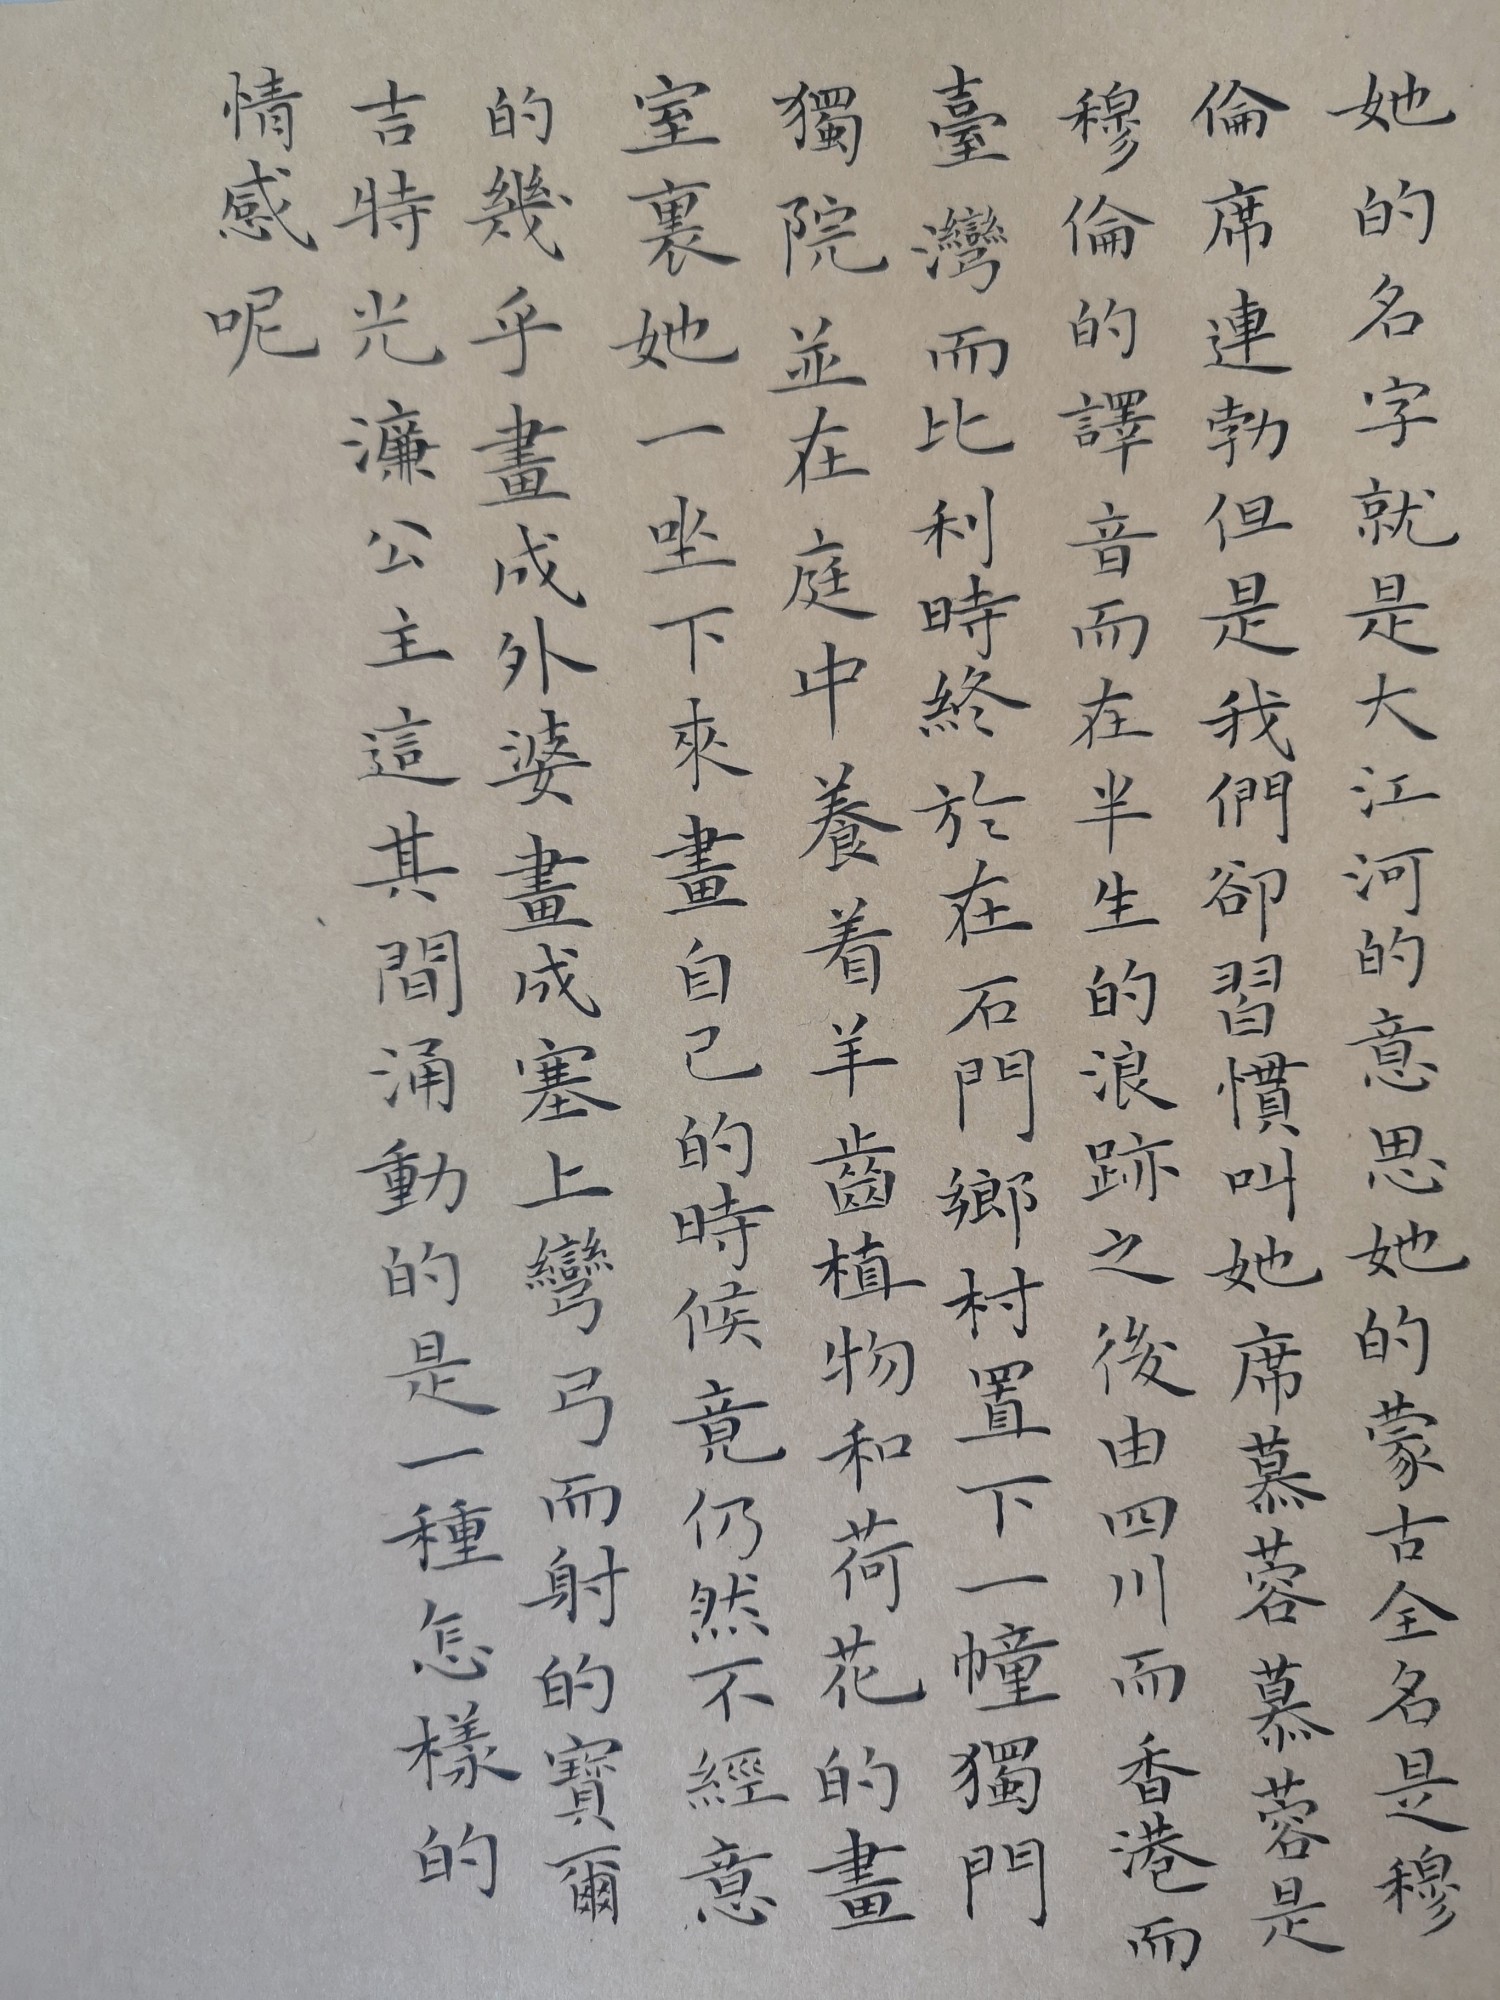 她的名字就是大江河的意思她的蒙古全名是穆
倫席連勃但是我們卻習慣叫她席慕蓉慕蓉是
穆倫的譯音而在半生的浪跡之後由四川而香港而
臺灣而比利時終於在石門鄉村置下一幢獨門
獨院並在庭中養着羊齒植物和荷花的畫
室裏她一坐下來畫自己的時候竟仍然不經意
的幾乎畫成外婆畫成塞上彎弓而射的寶爾
吉特光濂公主這其間涌動的是一種怎樣的
情感呢